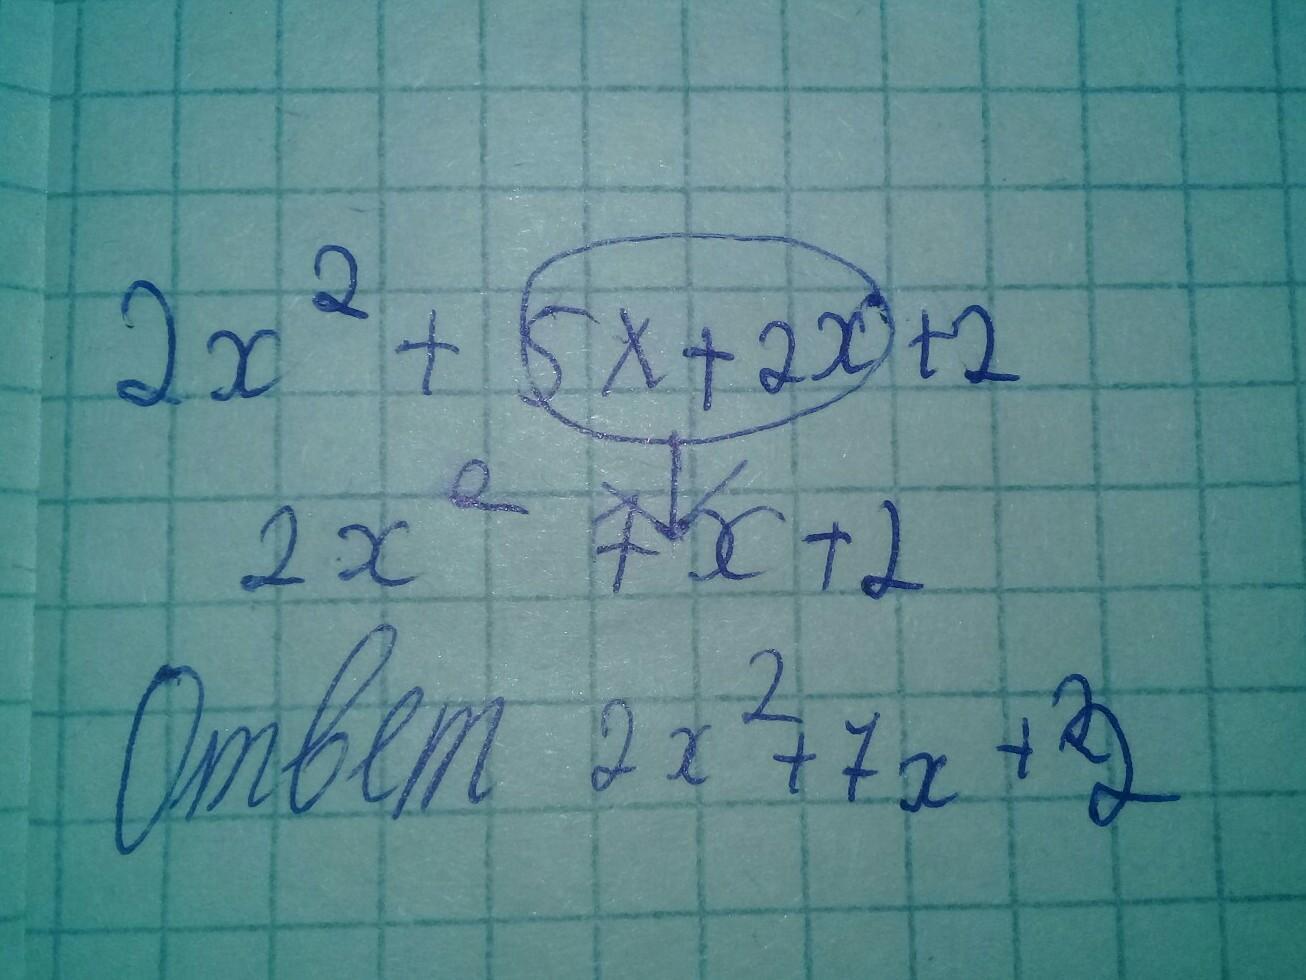 2x² + 5x + 2x + 2
2x² 7x + 2
Ответ 2x² + 7x + 2